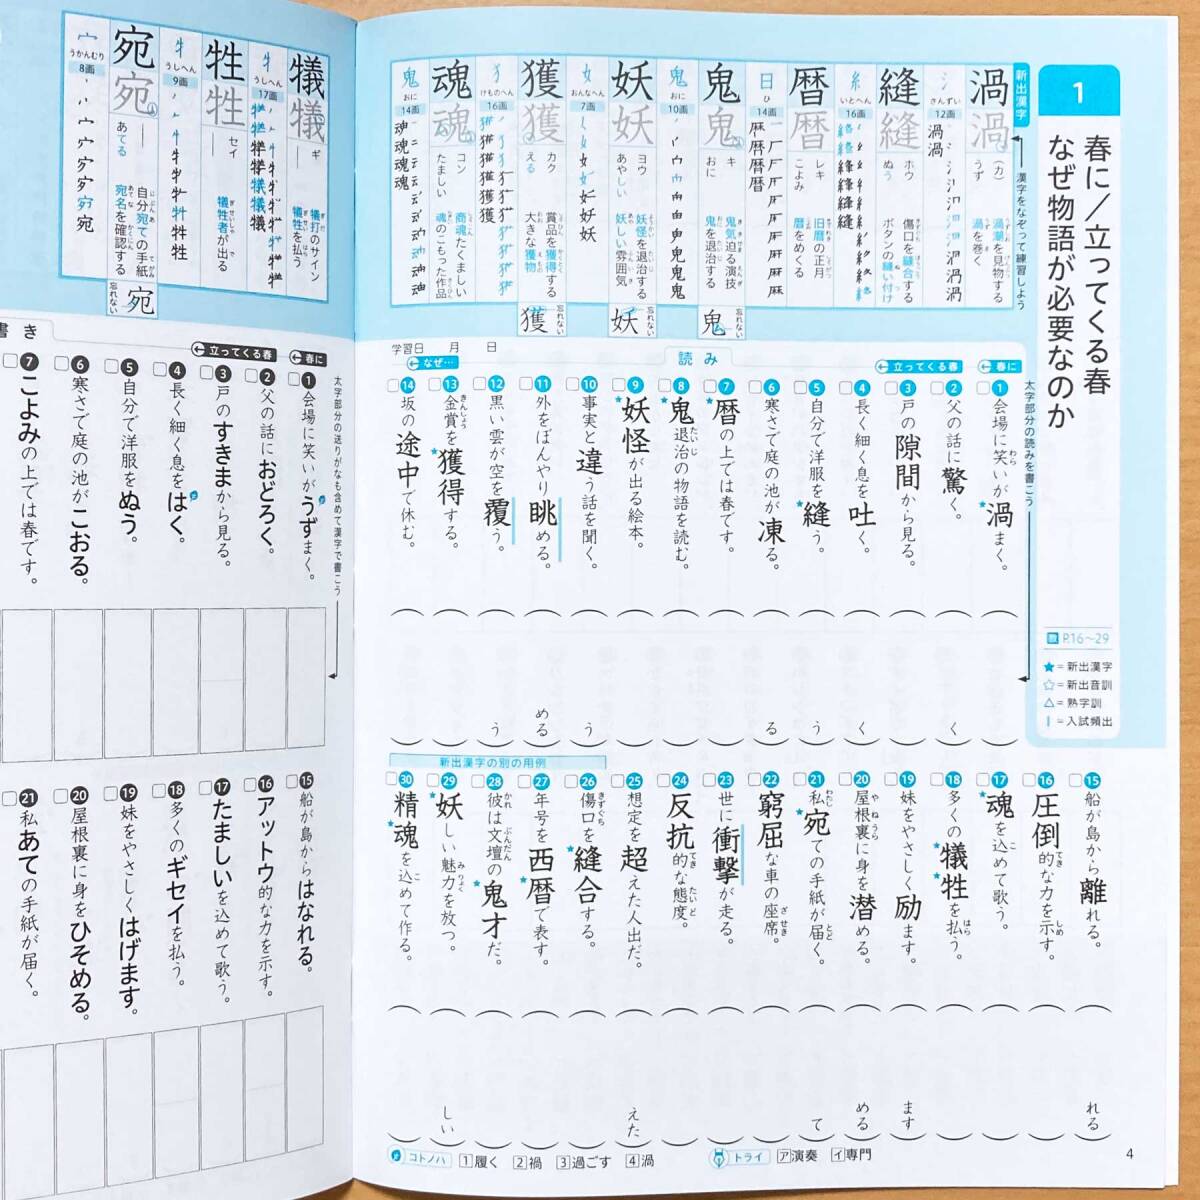 1
春に/立ってくる春
なぜ物語が必要なのか
教 P.16〜29
★=新出漢字
☆=新出音訓
△=熟字訓
|=入試頻出
新出漢字
漢字をなぞって練習しよう
渦 渦
さんずい
12画
(カ)
うず
渦潮を見物する
渦を巻く
縫 縫
いとへん
16画
ホウ
ぬう
傷口を縫合する
ボタンの縫い付け
暦 暦
日
ひ
14画
レキ
こよみ
旧暦の正月
暦をめくる
鬼 鬼
鬼
おに
10画
キ
おに
鬼気迫る演技
鬼を退治する
忘れない
鬼
妖 妖
おんなへん
7画
ヨウ
あやしい
妖怪を退治する
妖しい雰囲気
忘れない
妖
獲 獲
けものへん
16画
カク
える
賞品を獲得する
大きな獲物
忘れない
獲
魂 魂
鬼
おに
14画
コン
たましい
商魂たくましい
魂のこもった作品
犠 犠
うしへん
17画
ギ
犠打のサイン
犠牲を払う
牲 牲
うしへん
9画
セイ
犠牲者が出る
宛 宛
うかんむり
8画
あてる
自分宛ての手紙
宛名を確認する
忘れない
宛
学習日 月 日
読み
太字部分の読みを書こう
春に
1 会場に笑いが渦まく。
立ってくる春
2 父の話に驚く。
く
3 戸の隙間から見る。
4 長く細く息を吐く。
く
5 自分で洋服を縫う。
う
6 寒さで庭の池が凍る。
る
7 暦の上では春です。
8 鬼退治の物語を読む。
9 妖怪が出る絵本。
10 事実と違う話を聞く。
う
11 外をぼんやり眺める。
める
12 黒い雲が空を覆う。
う
なぜ…
13 金賞を獲得する。
14 坂の途中で休む。
15 船が島から離れる。
れる
16 圧倒的な力を示す。
17 魂を込めて歌う。
18 多くの犠牲を払う。
19 妹をやさしく励ます。
ます
20 屋根裏に身を潜める。
める
21 私宛ての手紙が届く。
て
22 窮屈な車の座席。
23 世に衝撃が走る。
24 反抗的な態度。
25 想定を超えた人出だ。
えた
新出漢字の別の用例
26 傷口を縫合する。
27 年号を西暦で表す。
28 彼は文壇の鬼才だ。
29 妖しい魅力を放つ。
しい
30 精魂を込めて作る。
コトノハ 1履く 2禍 3過ごす 4渦
トライ ア演奏 イ専門
4
書き
太字部分の送りがなも含めて漢字で書こう
春に
1 会場に笑いがうずまく。
立ってくる春
2 父の話におどろく。
3 戸のすきまから見る。
4 長く細く息をはく。
5 自分で洋服をぬう。
6 寒さで庭の池がこおる。
7 こよみの上では春です。
15 船が島からはなれる。
16 アットウ的な力を示す。
17 たましいを込めて歌う。
18 多くのギセイを払う。
19 妹をやさしくはげます。
20 屋根裏に身をひそめる。
21 私あての手紙が届く。